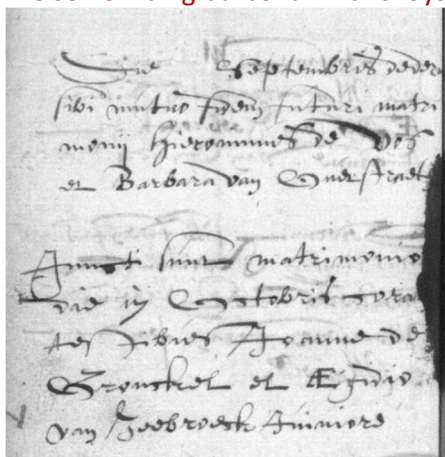 Die Septembris deder
sibi mutuo fidem futuri matri
monij Hieronimus de Vos
et Barbara van Overstraet
Juncti sunt matrimonio
die ij Octobris cora
testibus Joanne de
et Ægidio
van Heebroeck Juniore